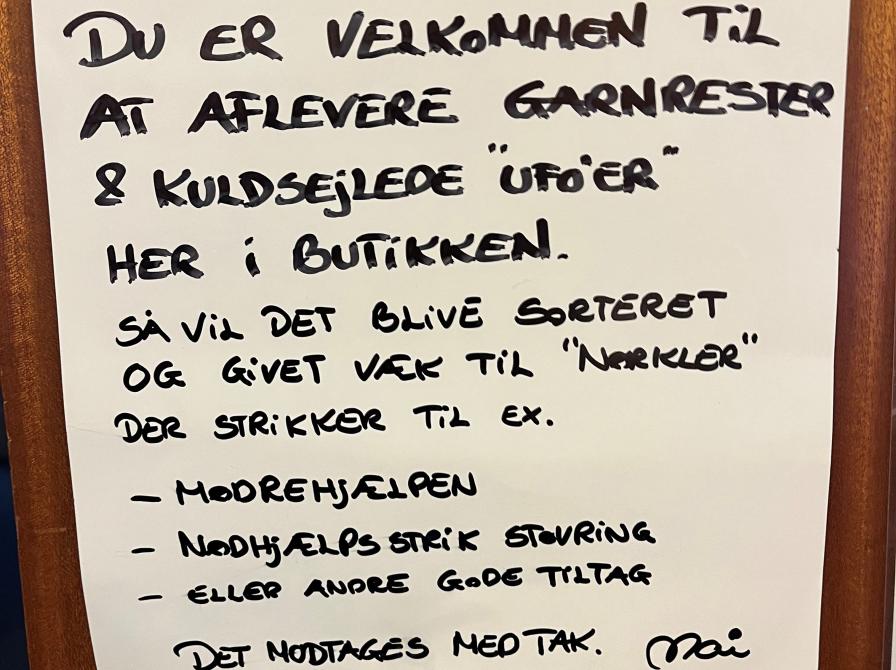 DU ER VELKOMMEN TiL
AT AFLEVERE GARNRESTER
& KULDSEjLEDE "UFO'ER"
HER i BUTiKKEN.
SÅ ViL DET BLiVE SORTERET
OG GiVET VÆK TiL "NØRKLER"
DER STRiKKER TiL EX.
– MØDREHjÆLPEN
– NØDHjÆLPSSTRiK STØVRiNG
– ELLER ANDRE GODE TiLTAG
DET MODTAGES MED TAK. Mai